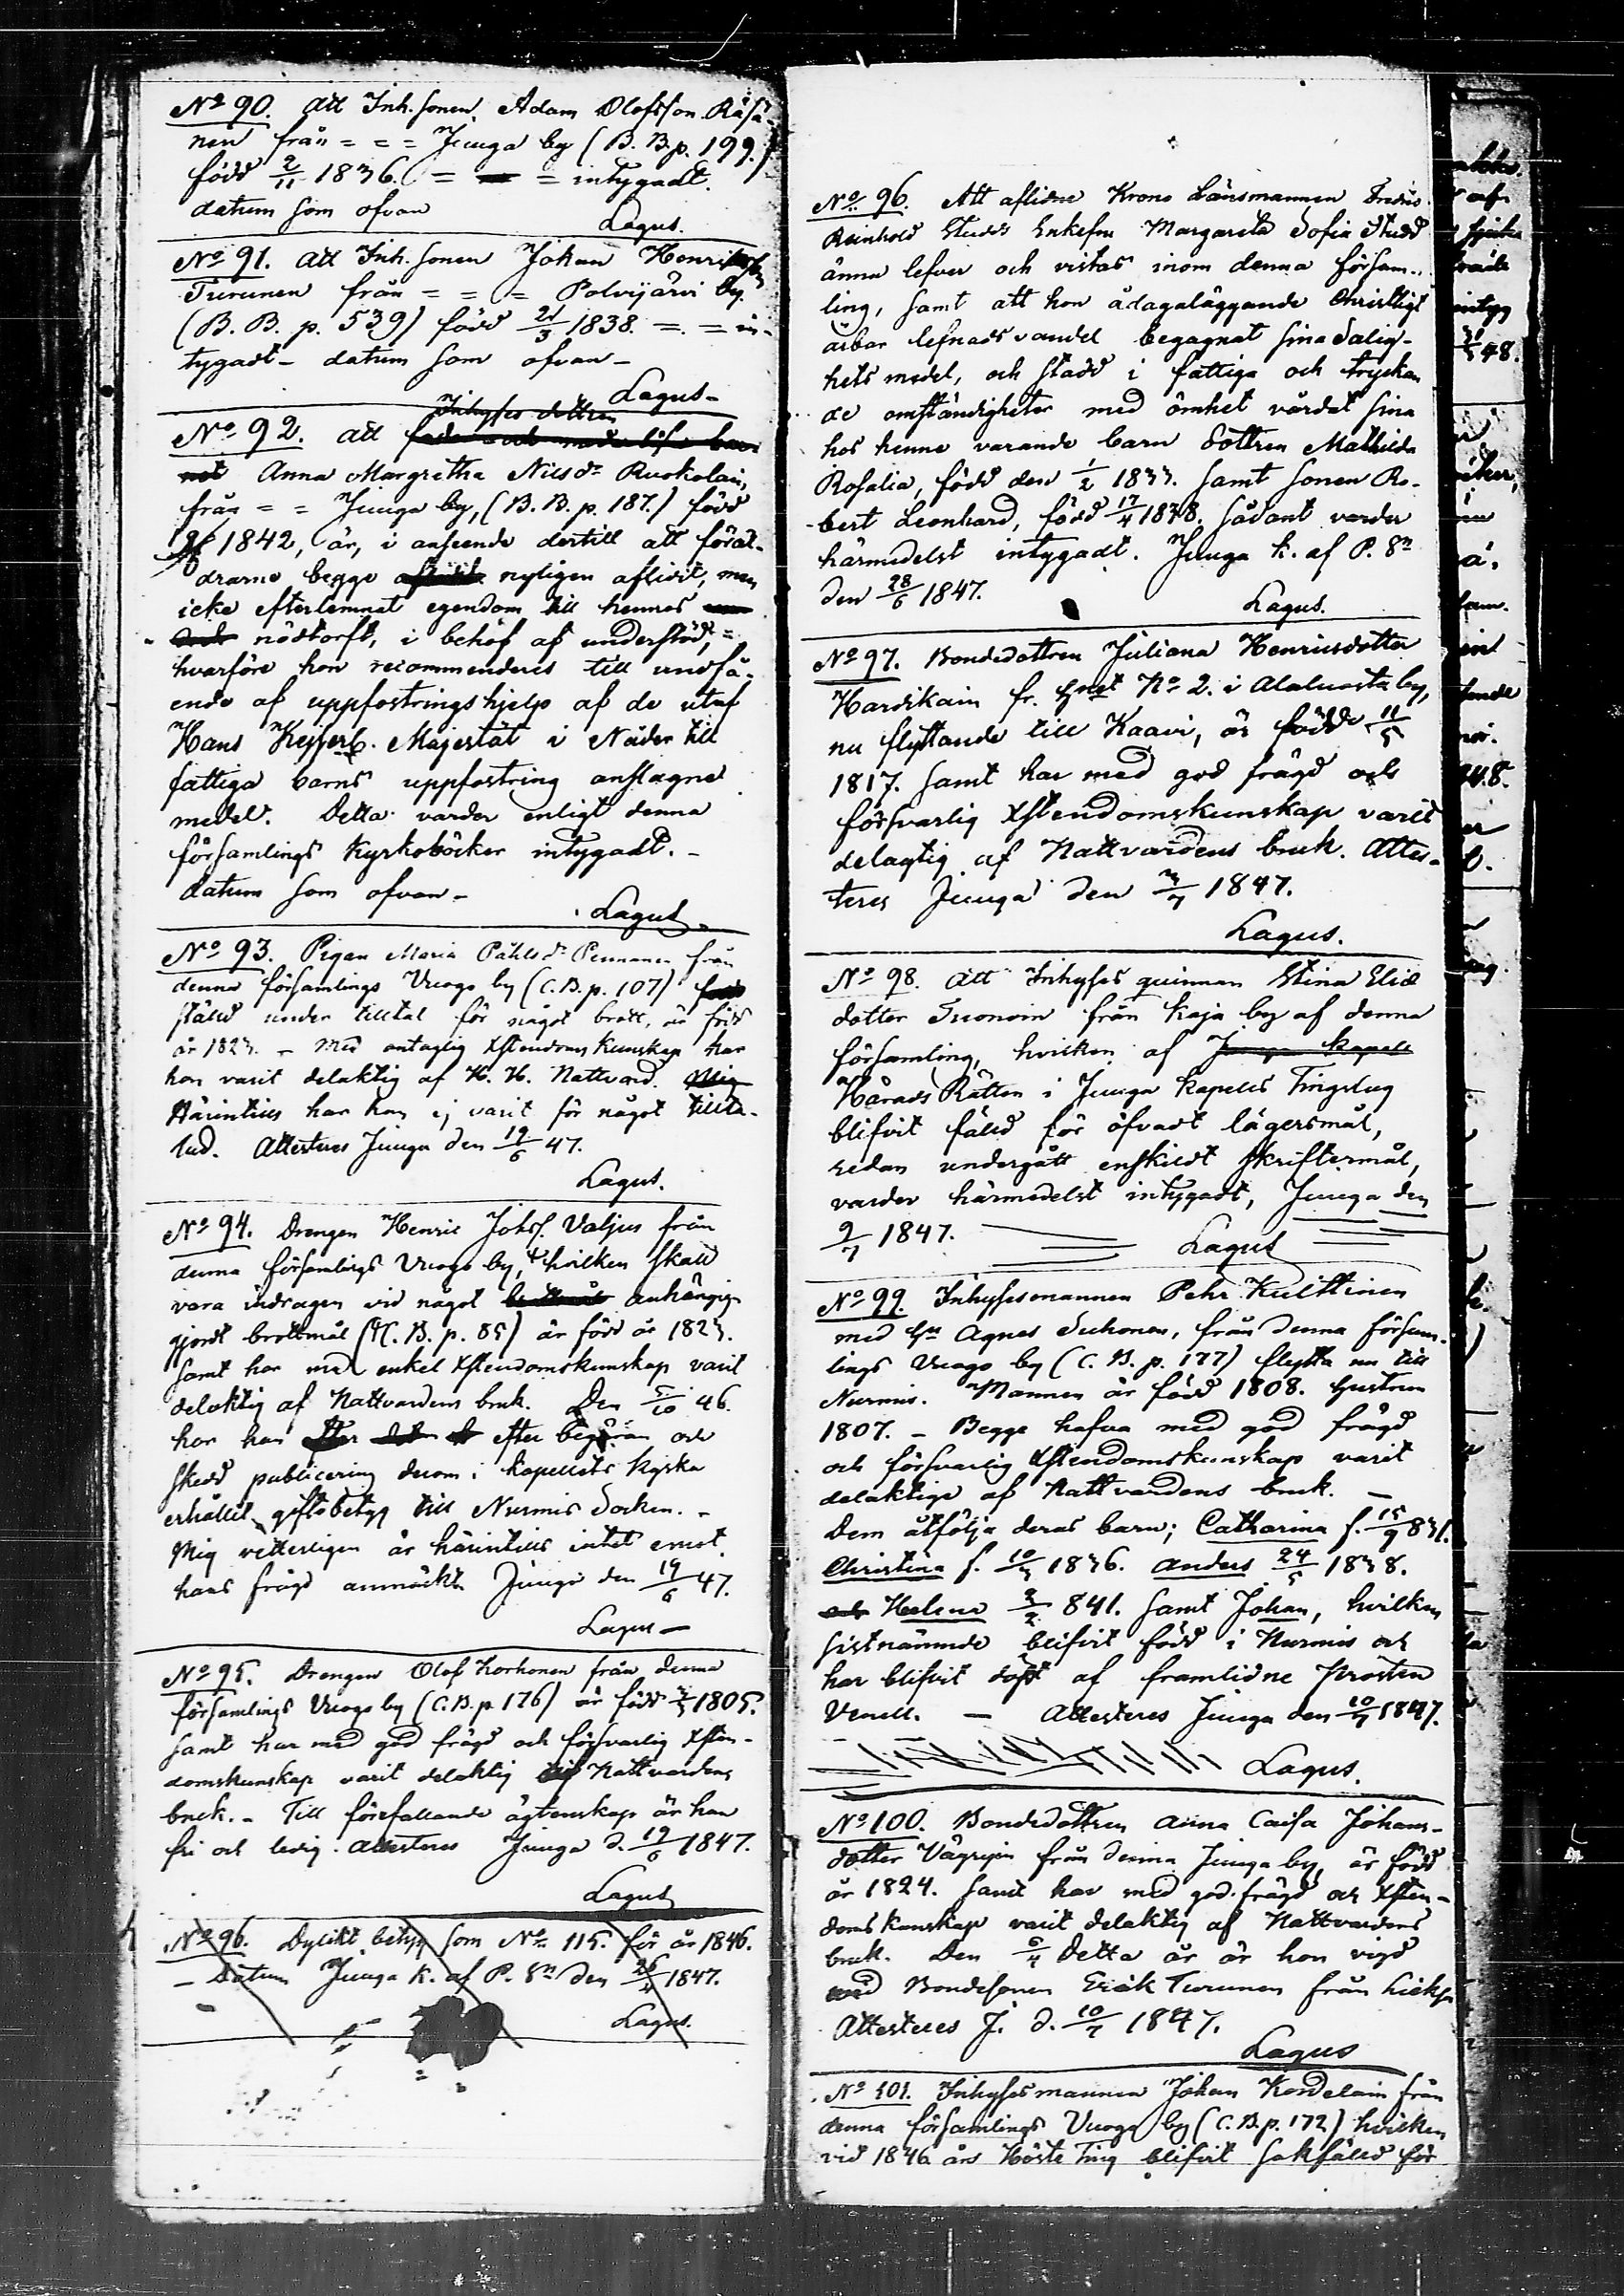 No 90. Att Inh. sonen Adam Olofsson Räsä-
nen från = = = Juuga by (B. B. p. 199.)
född 2/11 1836. = = intygadt.
datum som ofvan
Lagus.
No 91. Att Inh. sonen Johan Henriksson
Turunen från = = = Polvijärvi by.
(B. B. p. 539) född 21/3 1838. = = in-
tygadt - datum som ofvan -
Lagus -
Inhyses dottren
No 92. Att
Anna Margretha Nilsdr Ruokolain,
från = = Juuga by, (B. B. p. 187.) född
1842, är, i anseende dertill att föräl-
drarne begge nyligen aflidit, men
icke efterlemnat egendom till hennes
nödtorft, i behof af understöd, =
hvarföre hon recommenderes till undfå-
ende af uppfostringshjelp af de utaf
Hans Kejserl. Majestät i Nåder till
fattiga barns uppfostring anslagne
medel. Detta varder enligt denna
församlings Kyrkoböcker intygadt. -
datum som ofvan -
Lagus
No 93. Pigan Maria Påhlsdr Pennanen från
denna församlings Vuogo by (C. B. p. 107)
stäld under tilltal för något brott, är född
år 1823. - Med antaglig Xstendoms Kunskap har
hon varit delaktig af H. H. Nattvard. Mig
Härintills har hon ej varit för något tillta-
lad. Attesteres Juuga den 19/6 47.
Lagus.
No 94. Drengen Henric Johss. Valjus från
denna församlings Vuogo by, hvilken skall
vara indragen vid något anhängig-
gjordt brottmål (C. B. p. 85) är född år 1823.
samt har med enkel Xstendomskunskap varit
delaktig af Nattvardens bruk. Den 5/10 46.
har han efter begäran och
skedd publicering derom i Kapellets Kyrka
erhållit giftobetyg till Nurmis Socken. -
Mig vetterligen är härintills intet emot
hans frägd anmärkt. Juuga den 19/6 47.
Lagus -
No 95. Drengen Olof Korhonen från denna
församlings Vuogo by (C. B. p. 176) är född 1805.
samt har med god frägd och försvarlig Xsten-
domskunskap varit delaktig af Nattvardens
bruk. - Till förefallande ägtenskap är han
fri och ledig. Attesteres Juuga d. 19/6 1847.
Lagus
No 96. Dylikt betyg som No 115. för år 1846.
- Datum Juuga K. af P. Sn den 1847.
Lagus.
No 96. Att aflidne Krono Länsmannen Fredric
Reinhold Studds Enkefru Margareta Sofia Studd
ännu lefver och vistas inom denna försam-
ling, samt att hon ådagaläggande Christligt
ärbar lefnadsvandel begagnat sina Salig-
hets medel, och stadd i fattiga och tryckan
de omständigheter med ömhet vårdat sina
hos henne varande barn dottren Mathilda
Rosalia, född den 1/2 1833. samt sonen Ro-
bert Leonhard, född 17/4 1838. sådant varder
härmedelst intygadt. Juuga K. af P. Sn
den 28/6 1847.
Lagus.
No 97. Bondedottren Juliana Henricsdotter
Hardikain fr. No 2. i Alaluosta by,
nu flyttande till Kaavi, är född 11/5
1817. samt har med god frägd och
försvarlig Xstendomskunskap varit
delagtig af Nattvardens bruk. Attes-
teres Juuga den 3/7 1847.
Lagus.
No 98. Att Inhyses quinnan Stina Elias
dotter Tuonoin från Kaja by af denna
församling, hvilken af Juuga Kapell
Härads Rätten i Juuga Kapells Tingslag
blifvit fäld för öfvadt lägersmål,
sedan undergått enskildt skriftermål,
varder härmedelst intygadt, Juuga den
9/7 1847.
Lagus
No 99. Inhysesmannen Pehr Kulttinen
med Hu Agnes Suhonen, från denna försam-
lings Vuogo by (C. B. p. 177) flytta nu till
Nurmis. Mannen är född 1808. Hustrun
1807. - Begge hafva med god frägd
och försvarlig Xstendomskunskap varit
delaktige af Nattvardens bruk. -
Dem åtfölja deras barn; Catharina f. 15/9 831.
Christina f. 10/3 1836. Anders 24/5 1838.
och Helena 841. samt Johan, hvilken
sistnämnde blifvit född i Nurmis och
har blifvit döpt af framlidne Prosten
Venell. - Attesteres Juuga den 10/7 1847.
Lagus.
No 100. Bondedottren Anna Caisa Johans-
dotter Vägrpin från denna Juuga by, är född
år 1824. samt har med god frägd och Xsten-
doms Kunskap varit delaktig af Nattvardens
bruk. Den detta år är hon vigd
med Bondesonen Erick Turunen från
Attesteres J. d. 10/7 1847.
Lagus
No 101. Inhysesmannen Johan Kordelain från
denna församlings Vuogo by (C. B. p. 172) hvilken
vid 1846 års Höste Ting blifvit sakfäld för